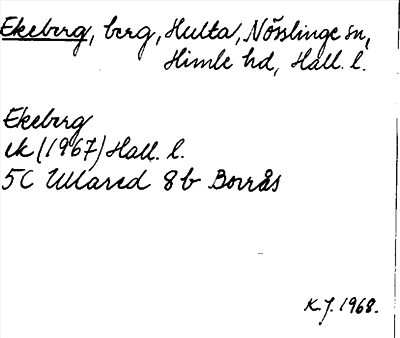 Ekeberg, berg, Hulta, Nösslinge sn,
Himle hd, Hall. l.
Ekeberg
ek (1967) Hall. l.
5C Ullared 8b Borrås
K.J. 1968.